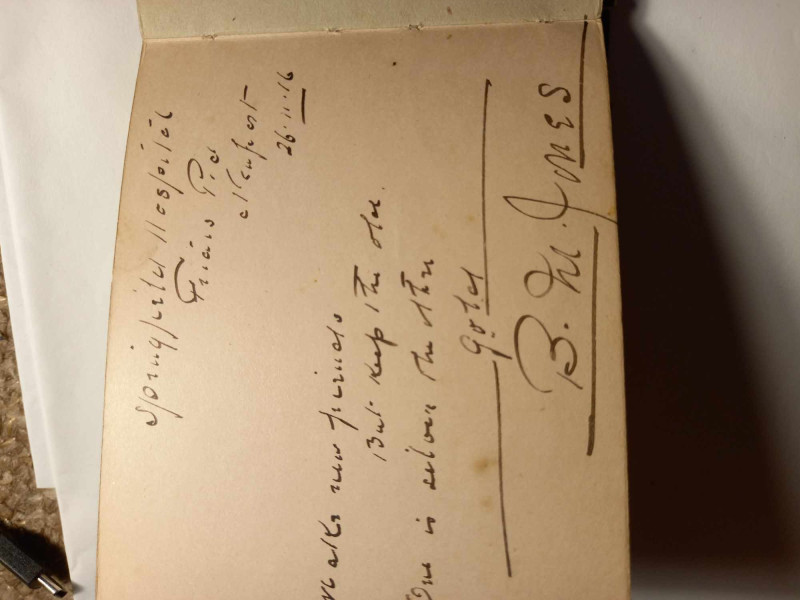 Springfield Hospital
Friars Rd
Newport
26.11.16
Make new friends
But keep the old.
One is silver the other
gold
B. M. Jones